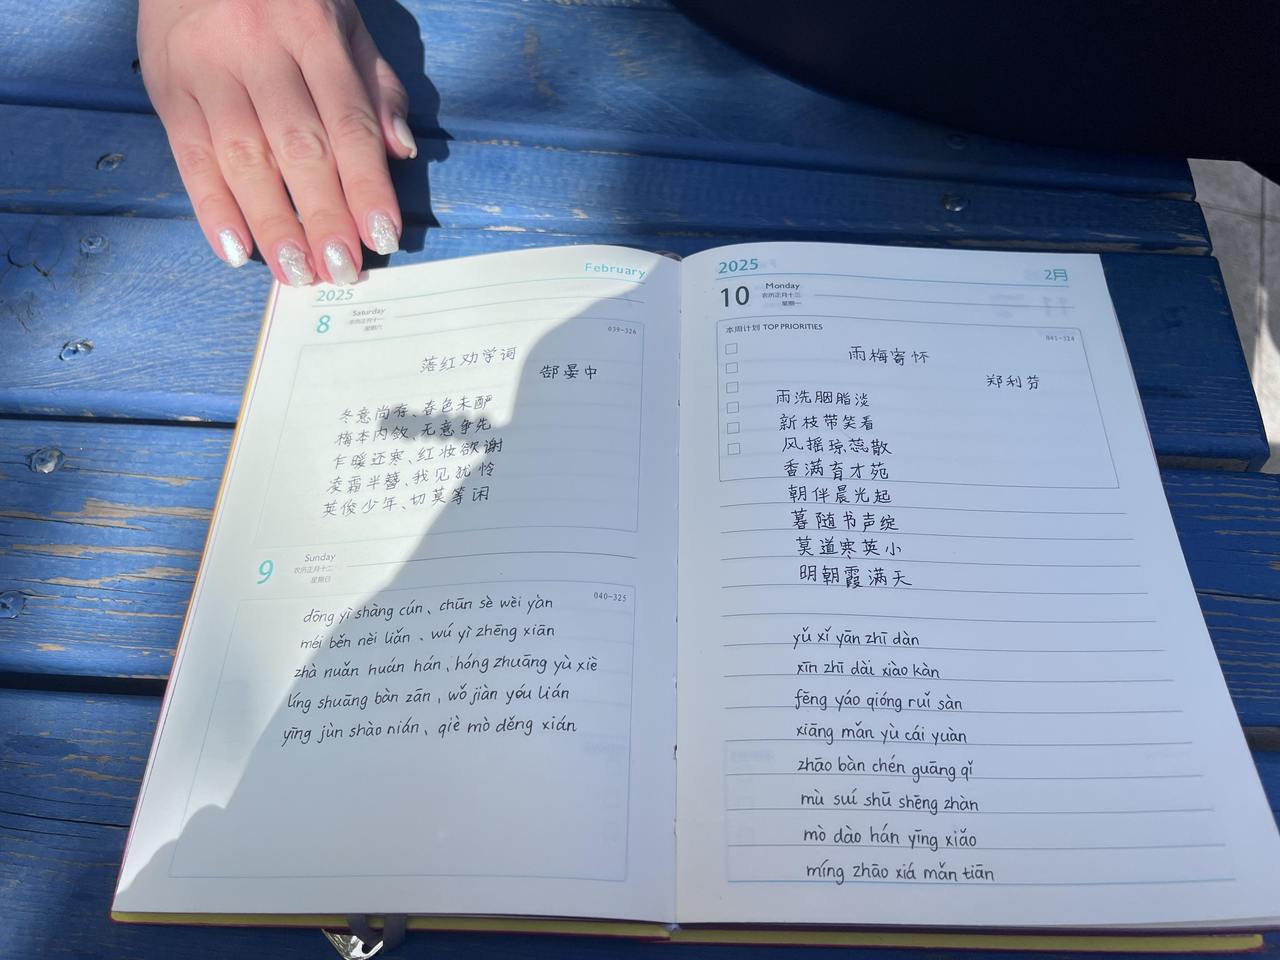 February
2025
8
Saturday
农历正月十一
星期六
039-326
落红劝学词
郜晏中
冬意尚存、春色未酽
梅本内敛、无意争先
乍暖还寒、红妆欲谢
凌霜半簪、我见犹怜
英俊少年、切莫等闲
9
Sunday
农历正月十二
星期日
040-325
dōng yì shàng cún、chūn sè wèi yàn
méi běn nèi liǎn、wú yì zhēng xiān
zhà nuǎn huán hán、hóng zhuāng yù xiè
líng shuāng bàn zān、wǒ jiàn yóu lián
yīng jùn shào nián、qiè mò děng xián
2025
2月
10
Monday
农历正月十三
星期一
本周计划 TOP PRIORITIES
041-324
雨梅寄怀
郑利芬
雨洗胭脂淡
新枝带笑看
风摇琼蕊散
香满育才苑
朝伴晨光起
暮随书声绽
莫道寒英小
明朝霞满天
yǔ xǐ yān zhī dàn
xīn zhī dài xiào kàn
fēng yáo qióng ruǐ sàn
xiāng mǎn yù cái yuàn
zhāo bàn chén guāng qǐ
mù suí shū shēng zhàn
mò dào hán yīng xiǎo
míng zhāo xiá mǎn tiān